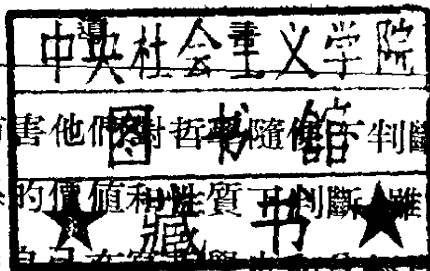 中央社会主义学院
图书馆
★藏书★
導
害他們對哲 隨便下判斷
的價值和性質下判斷